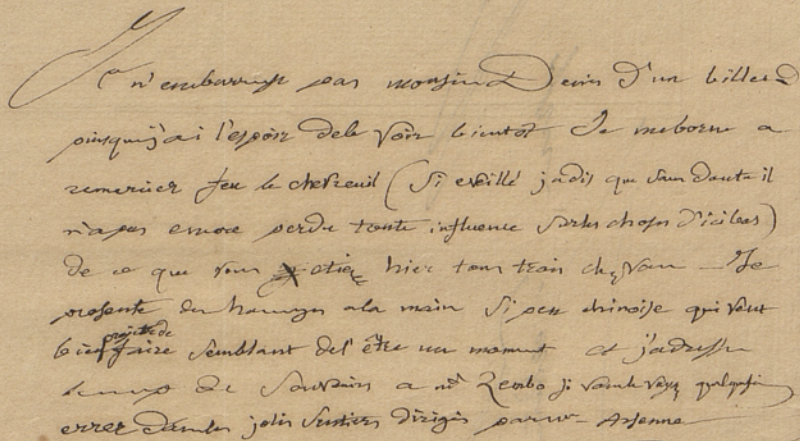 Je n'embarrasse pas monsieur Denis d'un billet
puisque j'ai l'espoir de le voir bientot Je me borne a
remercier feu le chevreuil (si eveillé jadis que sans doute il
n'a pas encore perdu toute influence sur les choses d'ici bas)
de ce que vous etiez hier tous trois chez vous — Je
presente des hommages a la main si peu chinoise qui veut
bien projette de faire semblant de l'être un moment et j'adresse
de souvenirs a Mr Zembo si vous le voyez quelquefois
errer dans les jolis sentiers dirigés par